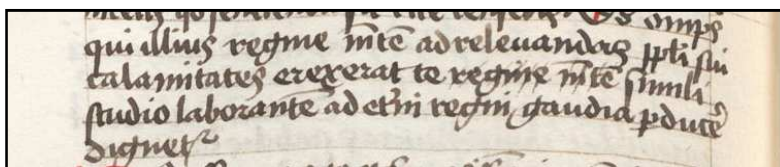 qui illius regine mẽtẽ ad releuandas ppli sui
calamitates erexerat te regine mẽtẽ simili
studio laborantẽ ad etñi regni gaudia pducẽ
dignet᷑